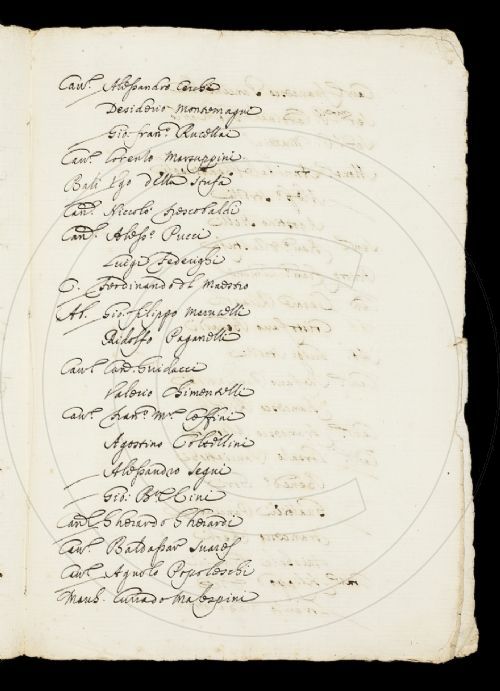 Cav.r Alessandro Cerchi
Desiderio Montemagni
Gio: Fran.o Rucellai
Cav.r Lorenzo Marzuppini
Balì Ugo della Stufa
Can.o Niccolò Frescobaldi
Can.o Aless.o Pucci
Luigi Federighi
C. Ferdinando del Maestro
Gio: Filippo Marucelli
Ridolfo Paganelli
Cav.r Guidacci
Valerio Chimentelli
Cav.r Fran.o M.a Ceffini
Agostino Coltellini
Alessandro Segni
Gio: B.a Cini
Can.o Gherardo Gherardi
Cav.r Baldassar Suares
Cav.r Agnolo Popoleschi
March. Currado Malespini